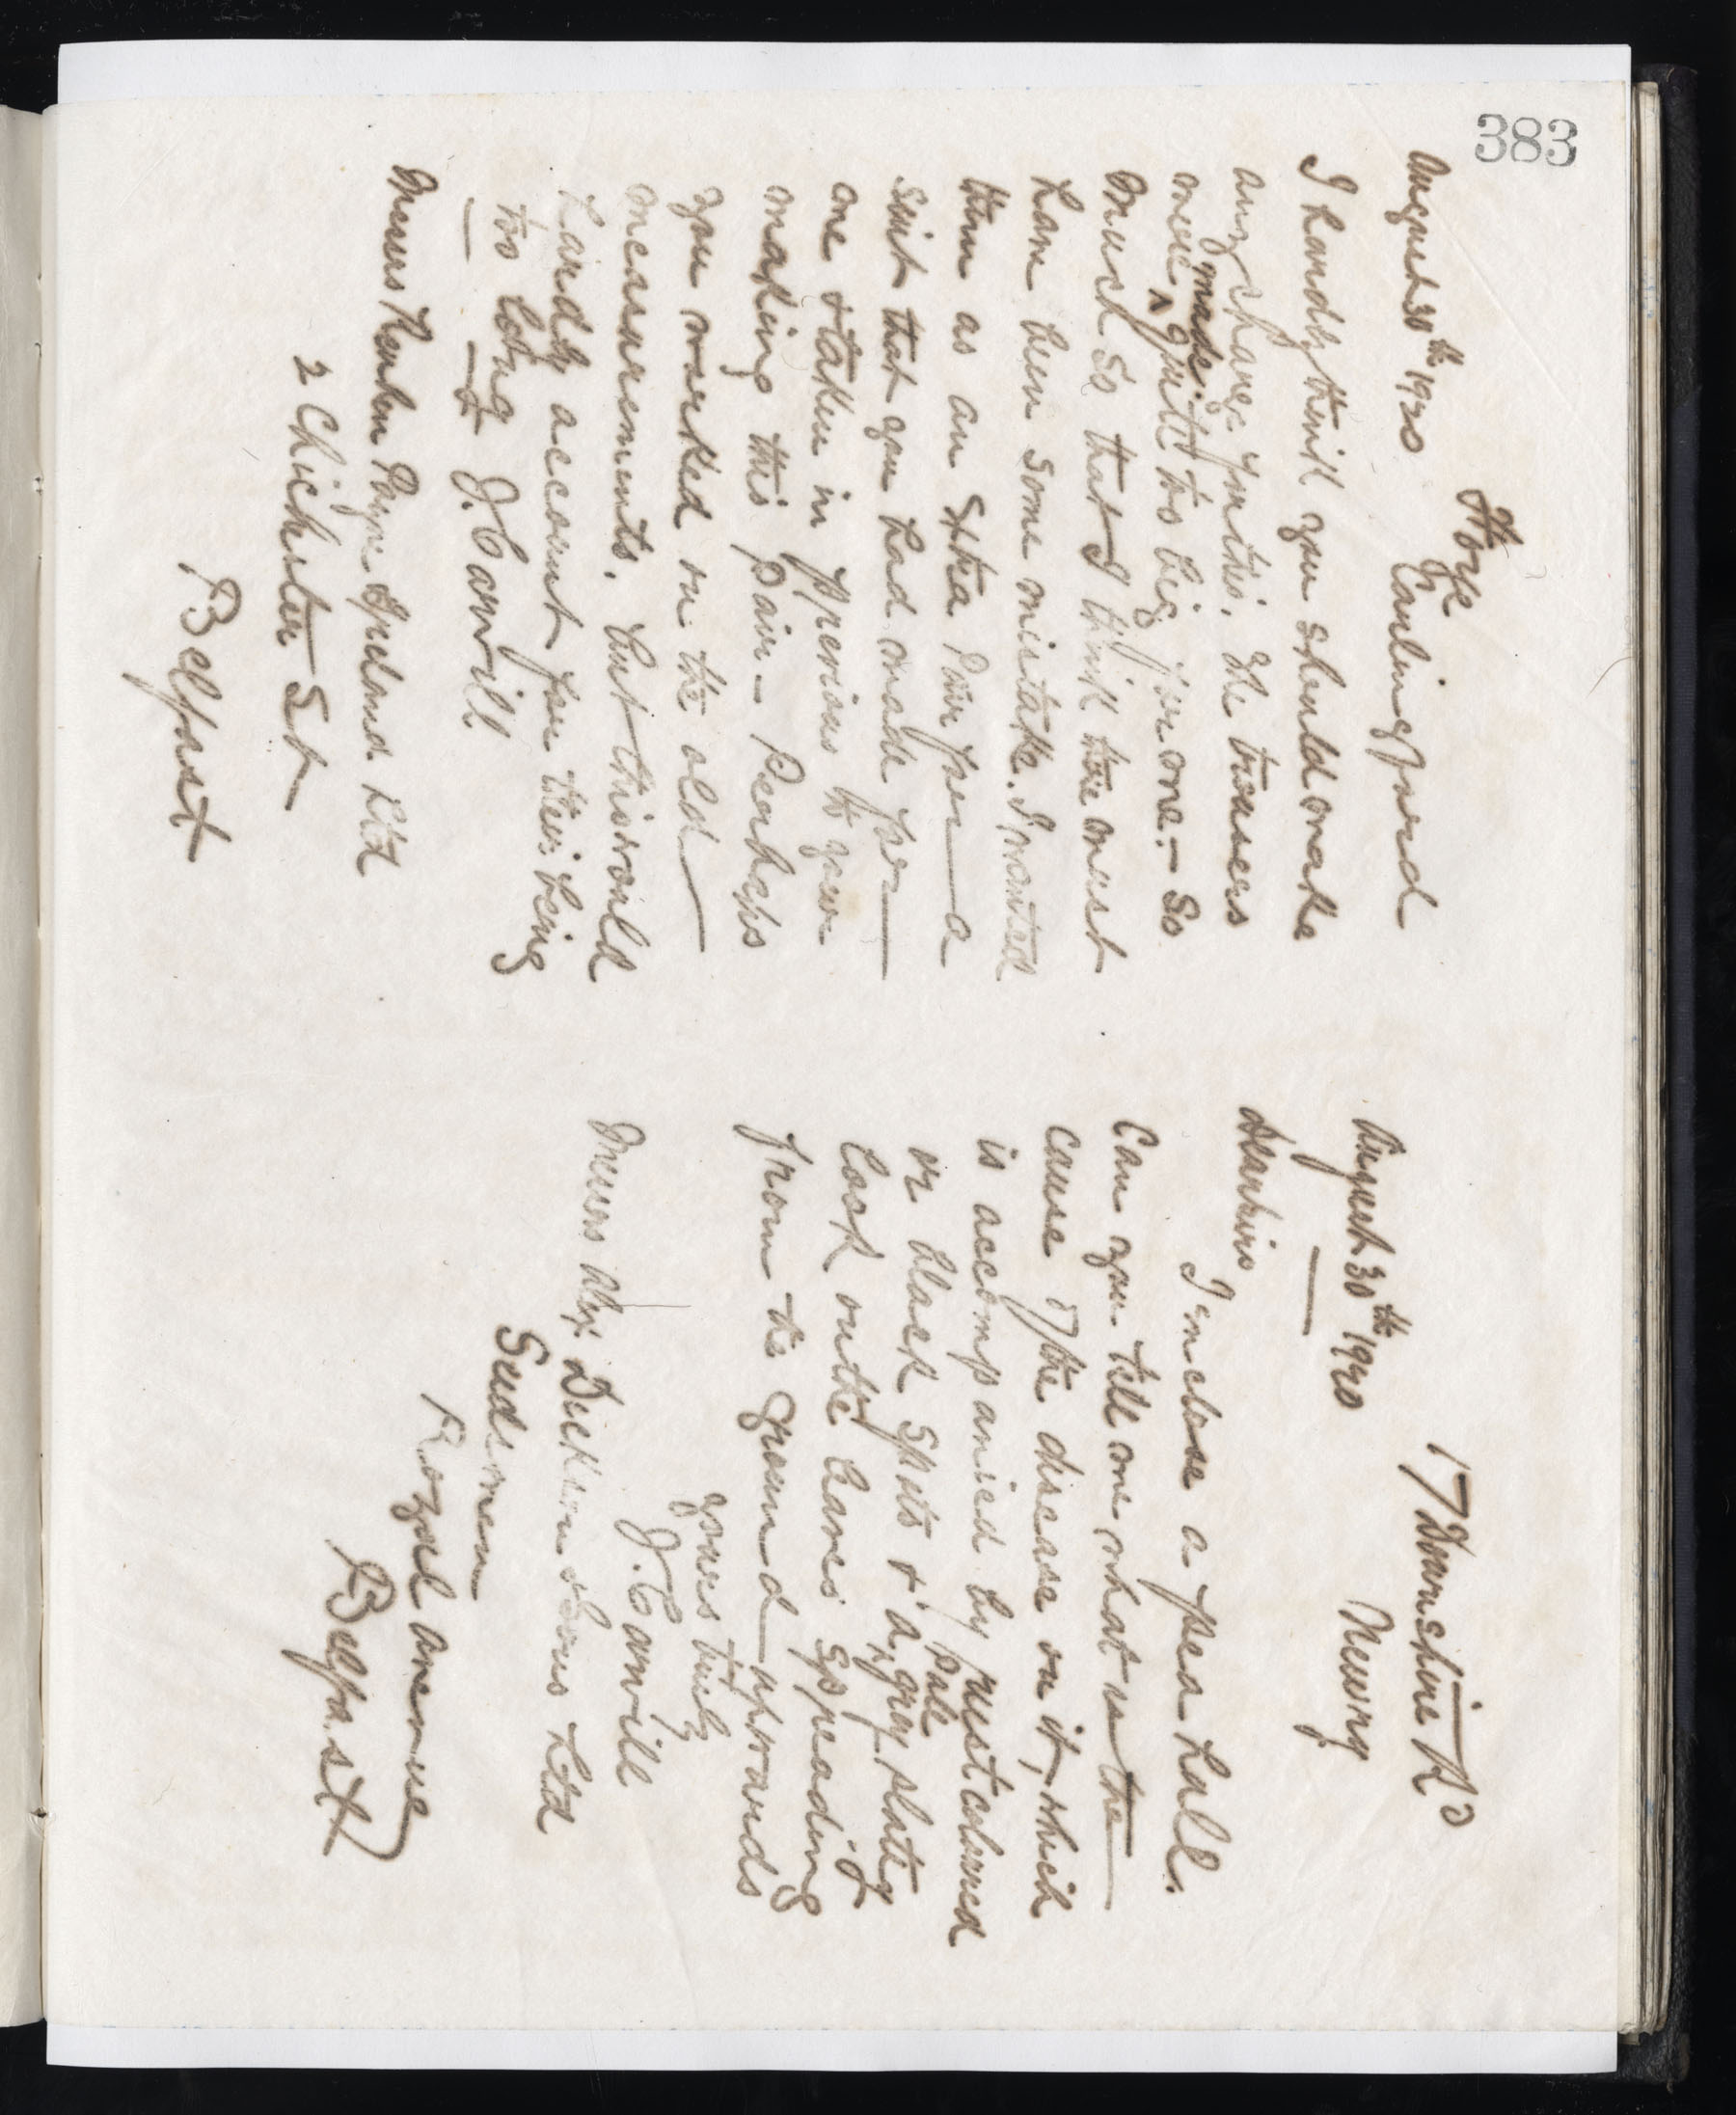 383
Hoyle
Carlingford
August 30th 1920
I hardly think you should make
any charge for this. The trousers
were made quite too big for me. - So
much so that I think there must
have been some mistake. I wanted
them as an extra pair for a
suit that you had made for
me & taken in previous to your
making this pair - Perhaps
you worked on the old
measurements. but this would
hardly account for their being
too long
J. Carvill
Messrs Payne Ireland Ltd
2 Chichester St
Belfast
17 Downshire Rd
Newry
August 30th 1920
Dear Sirs
I enclose a pea hull.
Can you tell me what is the
cause of the disease on it, which
is accompanied by rust coloured
or black spots & a pale grey slatey
look on the leaves spreading
from the ground upwards
yours truly
J. Carvill
Messrs Alex. Dickson & Sons Ltd
Seedsmen
Royal Avenue
Belfast